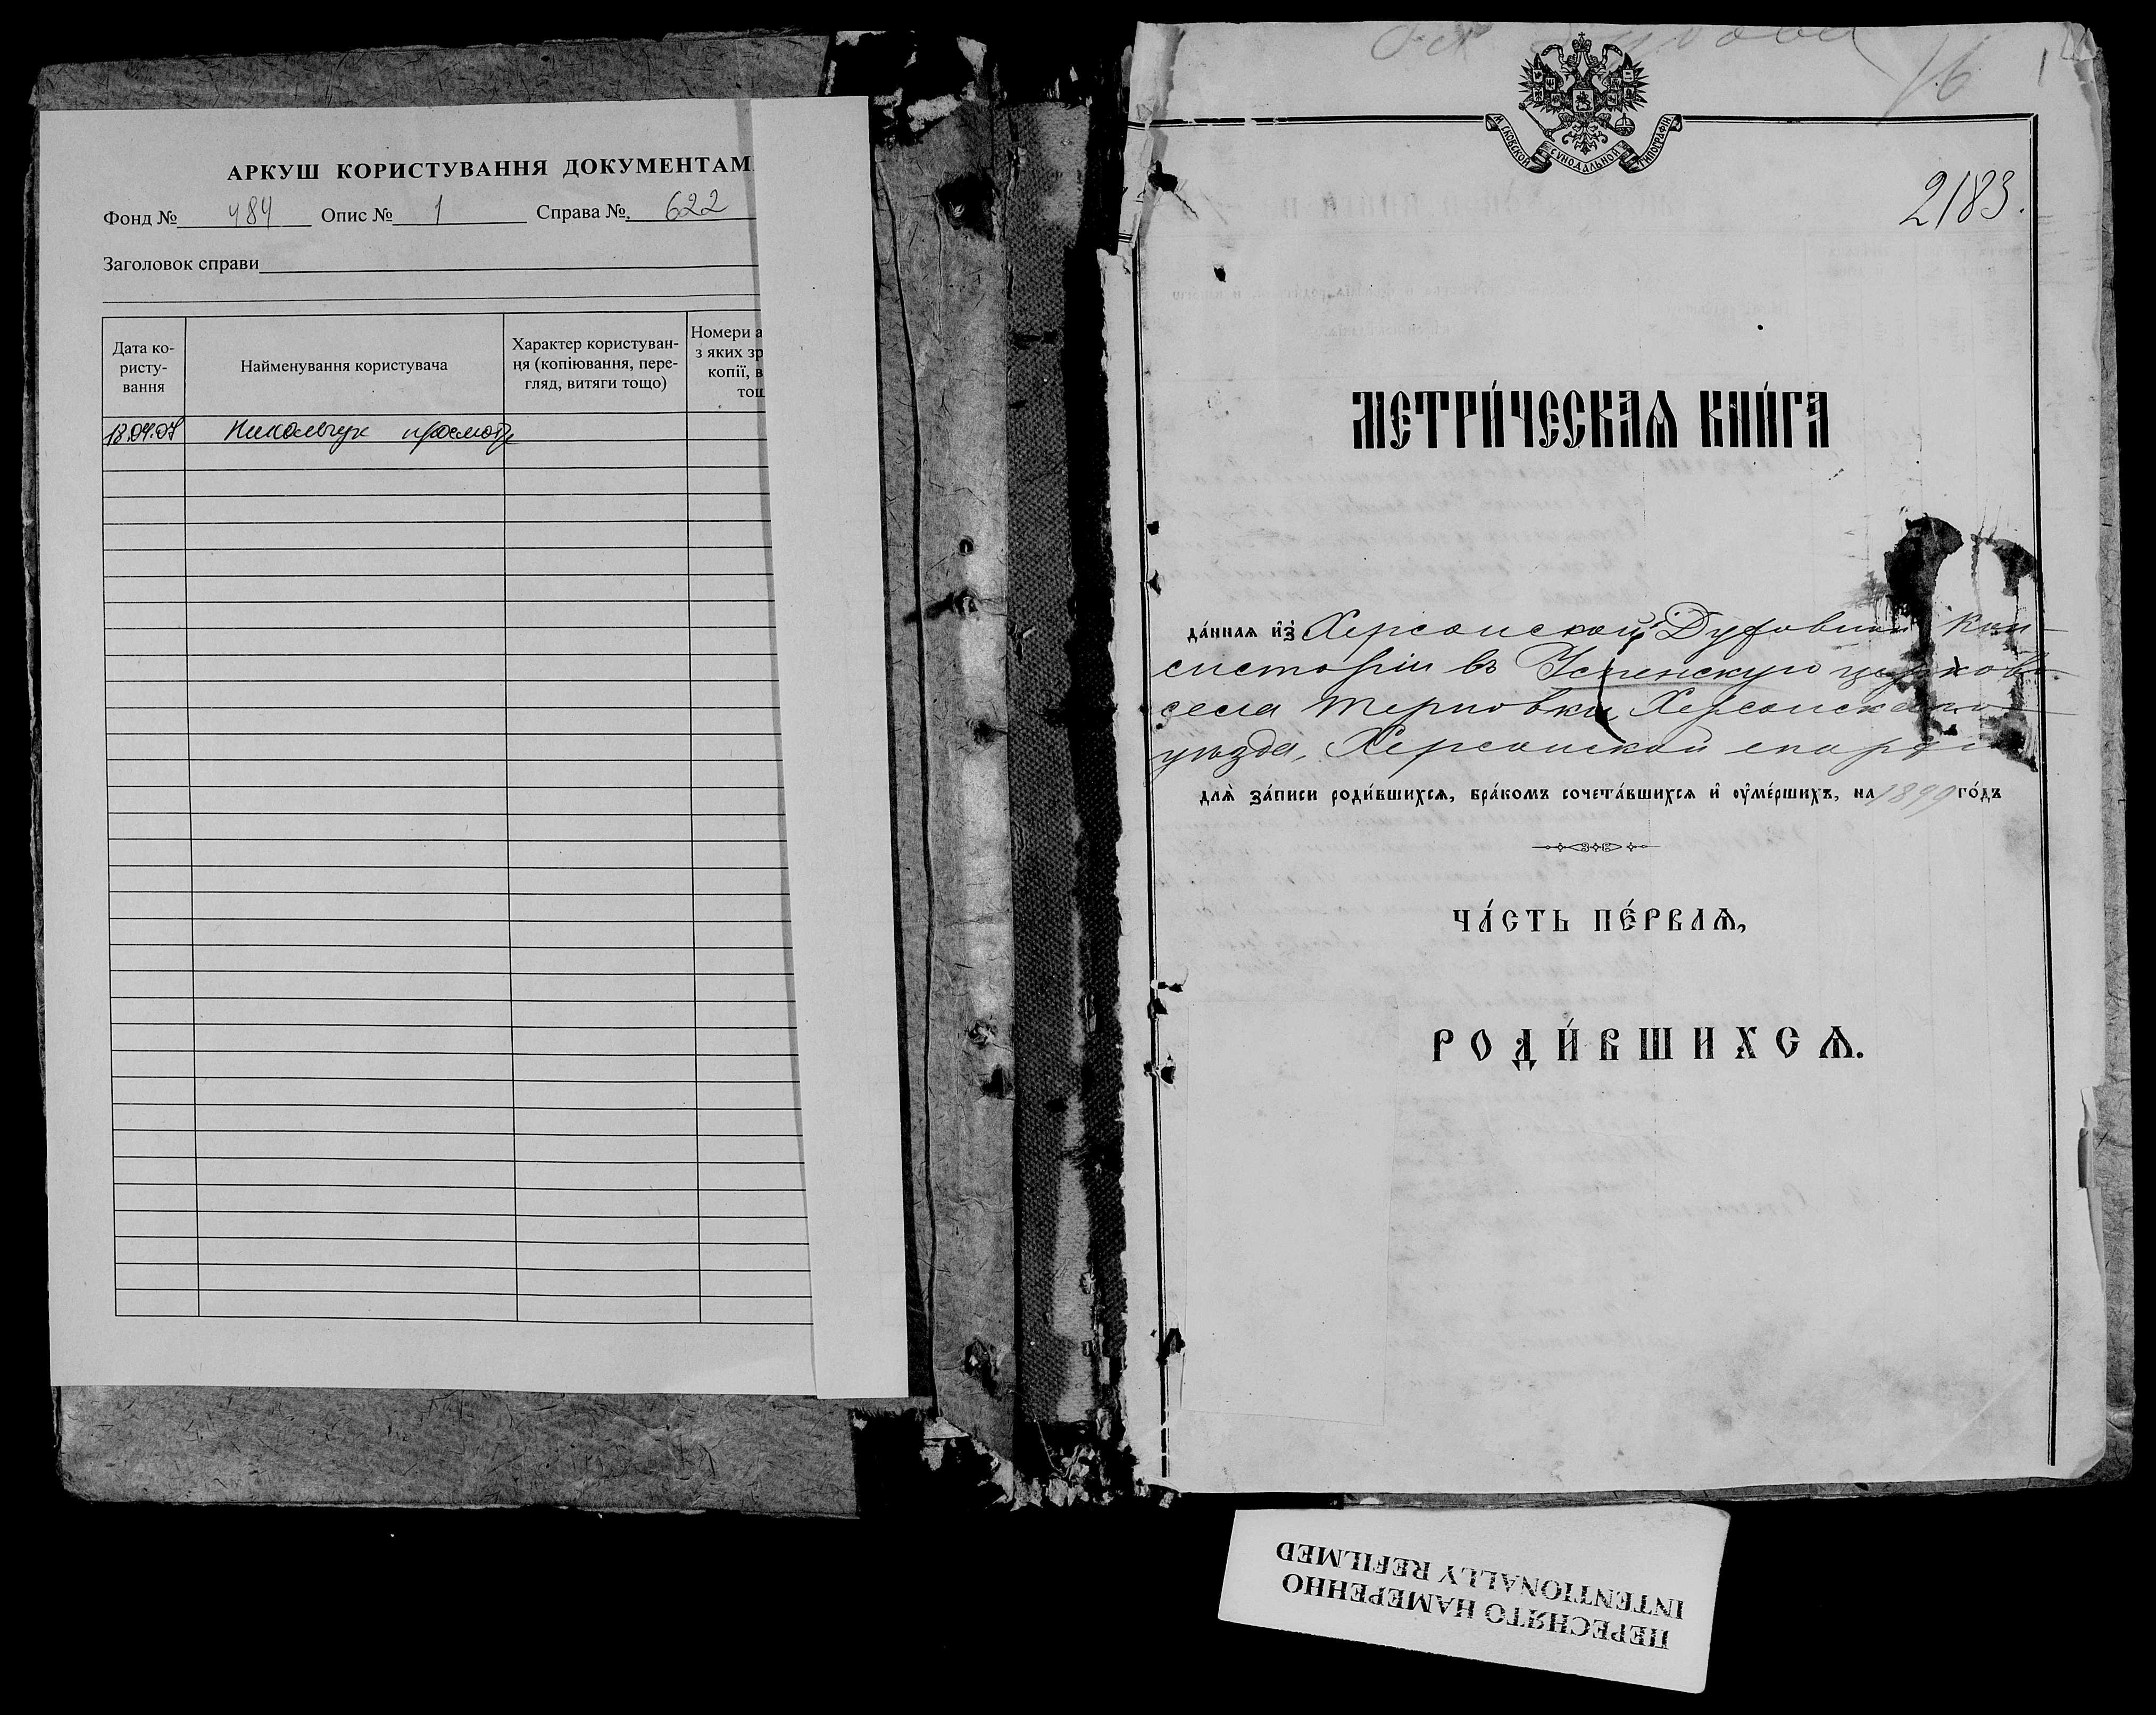 АРКУШ КОРИСТУВАННЯ ДОКУМЕНТАМ
Фонд № 484 Опис № 1 Справа № 622
Заголовок справи
Дата ко-
ристу-
вання
Найменування користувача
Характер користуван-
ня (копіювання, пере-
гляд, витяги тощо)
Номери а
з яких зр
копії, в
тощ
13.04.07 Никольчук просмотр
16
1
М СКОВСКОЙ СѴНОДАЛЬНОЙ ТИПОГРАФІИ
2183.
МЕТРИ́ЧЕСКАѦ КНИ́ГА
да́ннаѧ и҆з̾ Херсонской Духовной Кон-
систоріи въ Успенскую церковь
села Терновки, Херсонскаго
уѣзда, Херсонской епархіи
длѧ̀ за́писи роди́вшихсѧ, бра́комъ сочета́вшихсѧ и҆ оу҆ме́ршихъ, на 1899 го́дъ
ЧА́СТЬ ПЕ́РВАѦ,
РОДИ́ВШИХСѦ.
ПЕРЕСНЯТО НАМЕРЕННО
INTENTIONALLY REFILMED